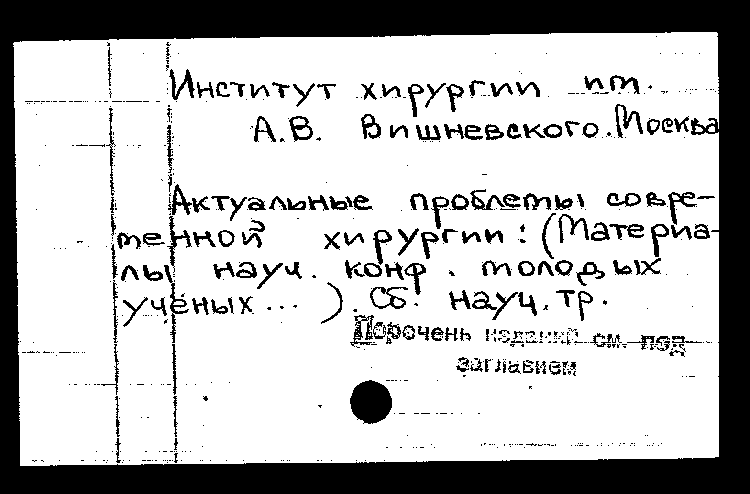 Институт хирургии им.
А.В. Вишневского. Москва
Актуальные проблемы совре-
менной хирургии: (Материа-
лы науч. конф. молодых
учёных ... ). Сб. науч. тр.
Перечень изданий см. под
заглавием